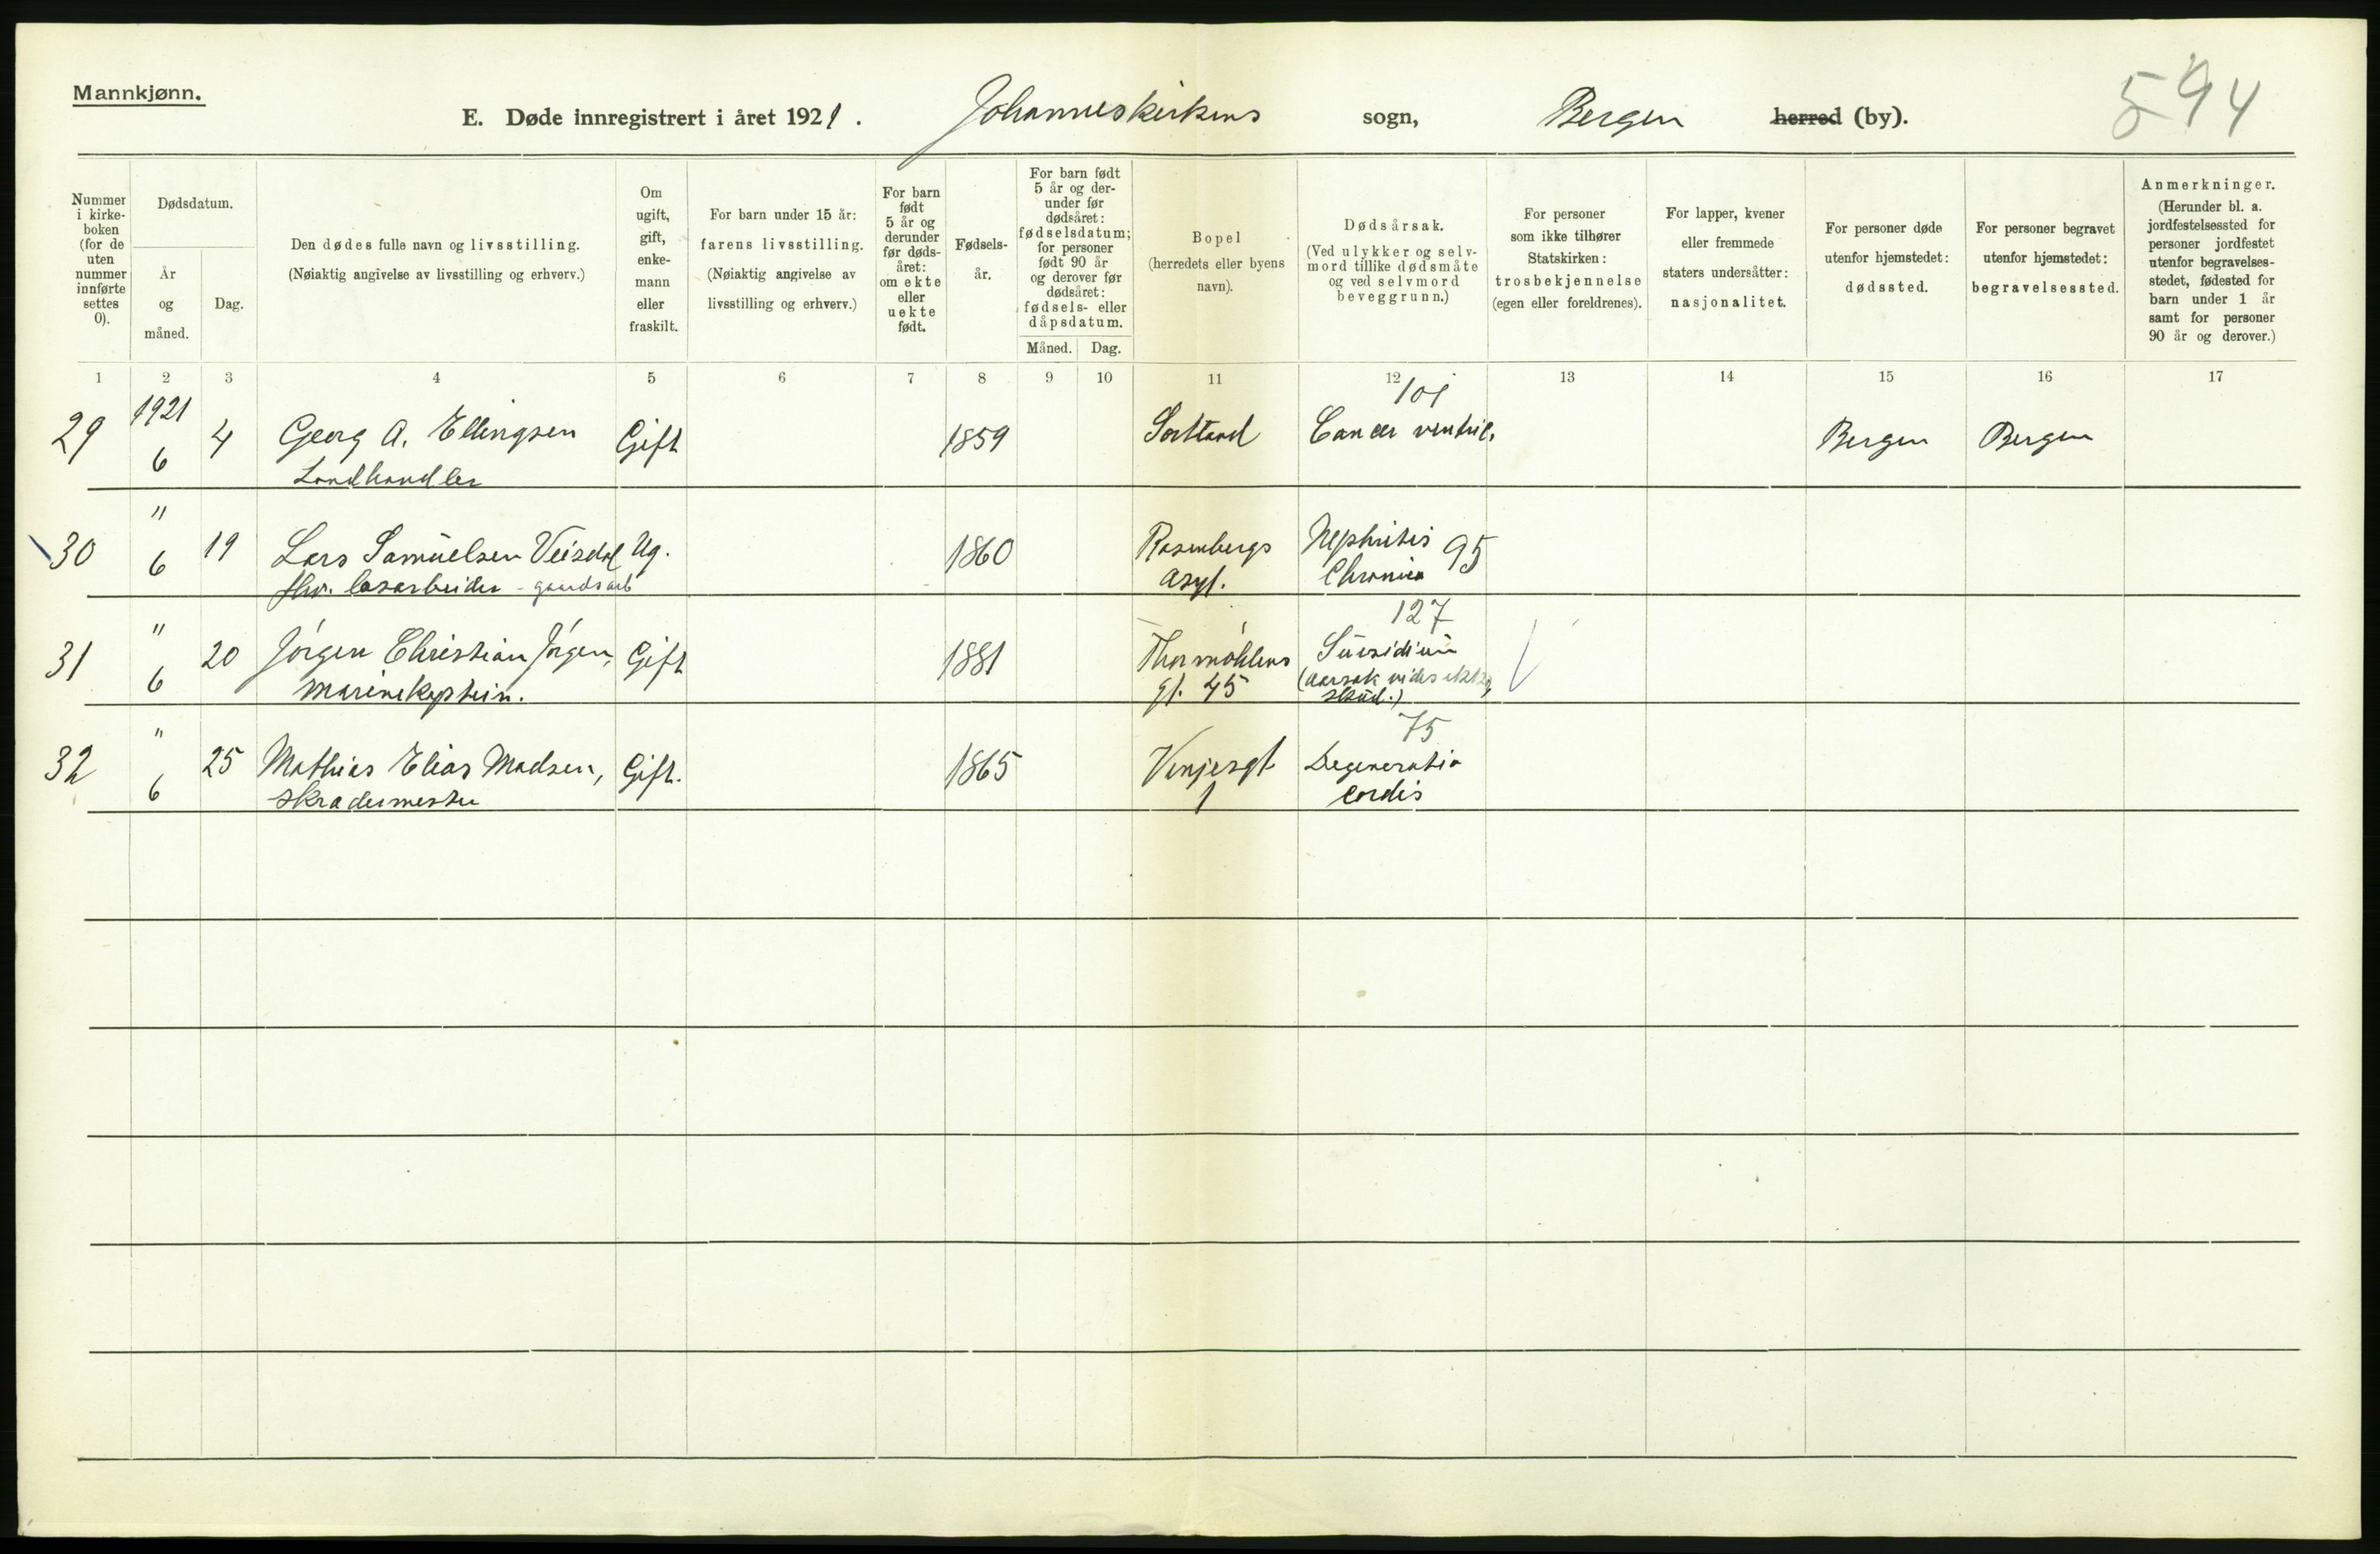 Mannkjønn.
594
E. Døde innregistrert i året 1921. Johanneskirkens sogn, Bergen herred (by).
Nummer i kirke-boken (for de uten nummer innførte settes 0).
Dødsdatum.
År og måned.
Dag.
Den dødes fulle navn og livsstilling.
(Nøiaktig angivelse av livsstilling og erhverv.)
Om ugift, gift, enke-mann eller fraskilt.
For barn under 15 år:
farens livsstilling.
(Nøiaktig angivelse av
livsstilling og erhverv.)
For barn født 5 år og derunder før døds-året: om ekte eller uekte født.
Fødsels-år.
For barn født 5 år og der-under før dødsåret: fødselsdatum; for personer født 90 år og derover før dødsåret: fødsels- eller dåpsdatum.
Måned. Dag.
Bopel
(herredets eller byens navn).
Dødsårsak.
(Ved ulykker og selv-mord tillike dødsmåte og ved selvmord beveggrunn.)
For personer som ikke tilhører Statskirken: trosbekjennelse (egen eller foreldrenes).
For lapper, kvener eller fremmede staters undersåtter: nasjonalitet.
For personer døde utenfor hjemstedet: dødssted.
For personer begravet utenfor hjemstedet: begravelsessted.
Anmerkninger.
(Herunder bl. a. jordfestelsessted for personer jordfestet utenfor begravelses-stedet, fødested for barn under 1 år samt for personer 90 år og derover.)
1 2 3 4 5 6 7 8 9 10 11 12 13 14 15 16 17
1921 101
29 6 4 Georg A. Ellingsen Gift 1859 Sortland Cancer ventric. Bergen Bergen
Landhandler
"
30 6 19 Lars Samuelsen Veisdal Ug. 1860 Rosenbergs Nephritis 95
fhv. løsarbeider - gaardsarb Asyl. Chronica
" 127
31 6 20 Jörgen Christian Jörgen, Gift 1881 Thormöhlens Suicidium
marinekaptein. gt. 45 (Aarsak vides ikke, skud.)
" 75
32 6 25 Mathias Elias Madsen, Gift. 1865 Vinjesgt Degeneratio
skradermester 1 cordis